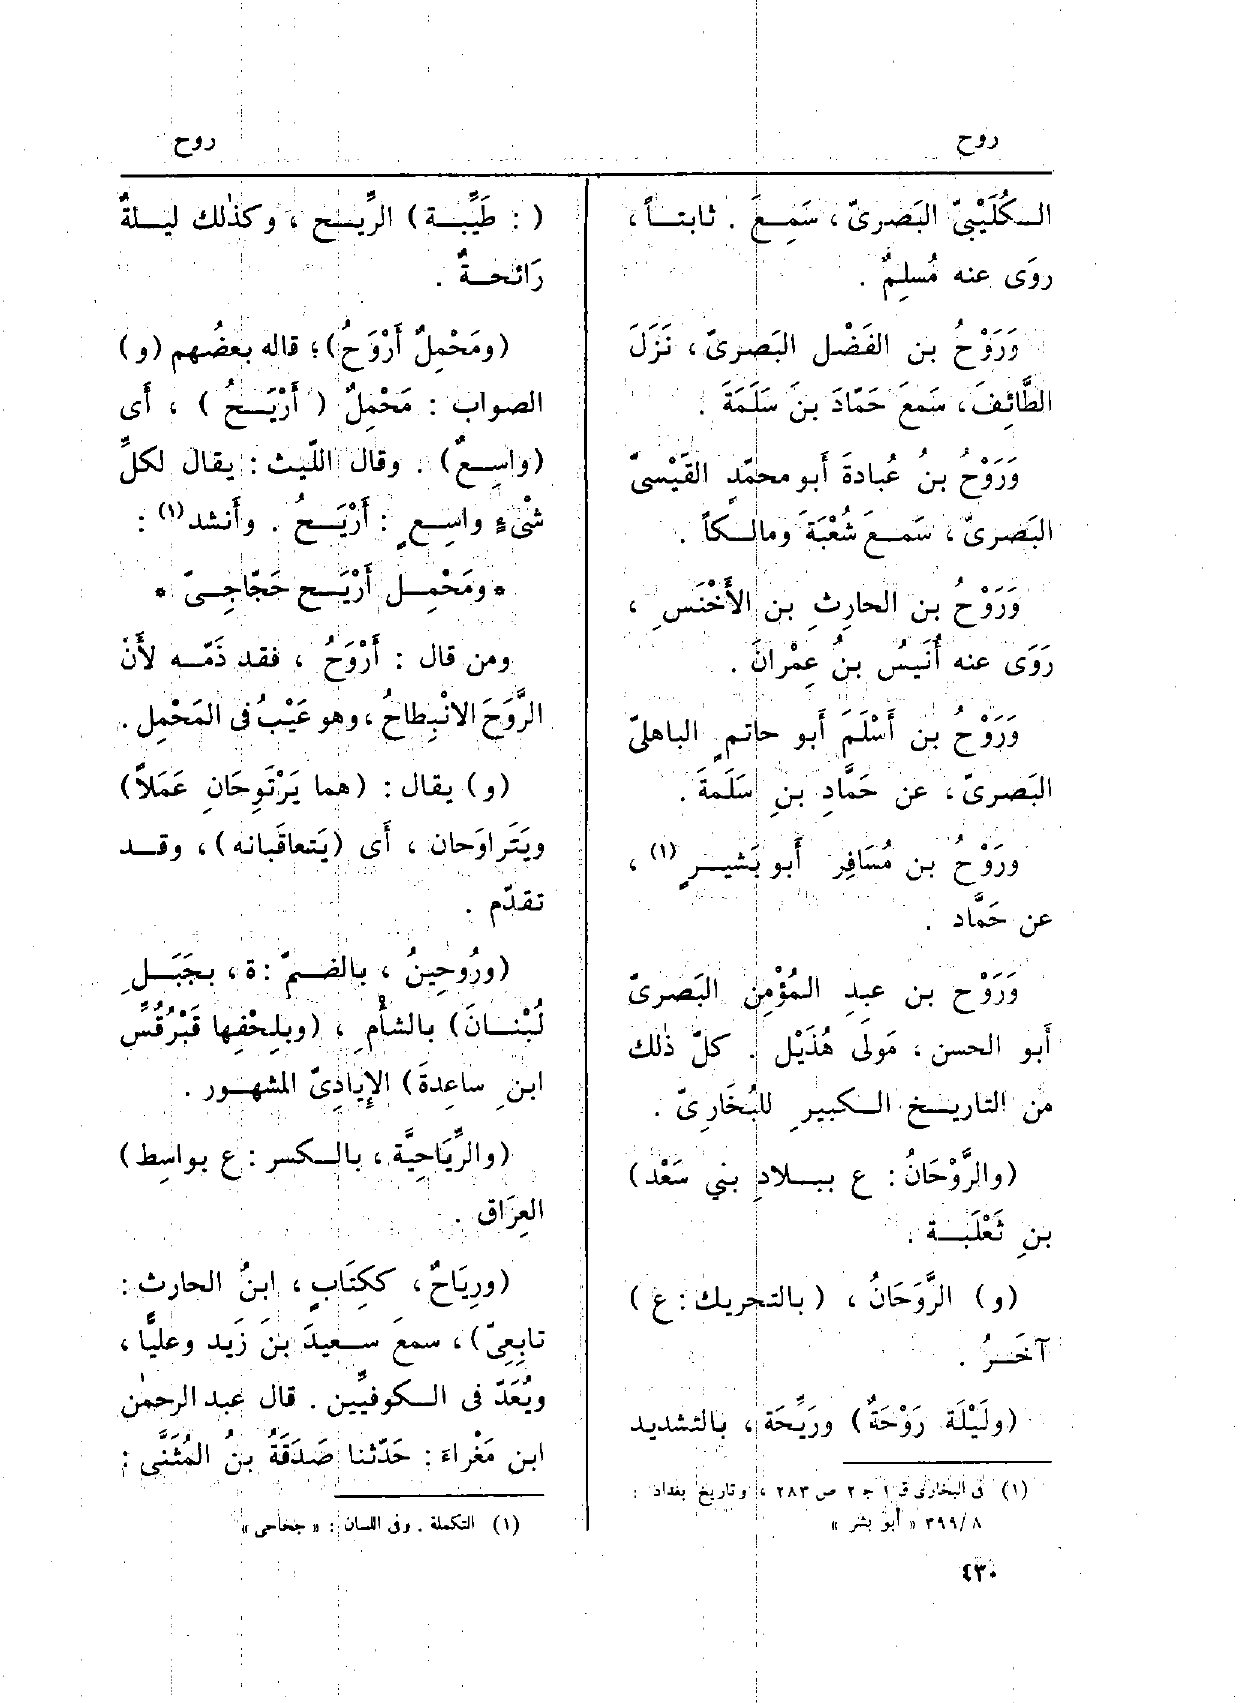 روح
روح
الـكُلَيْبِىّ البَصرىّ ، سَمِـعَ . ثابتـاً ،
روَى عنه مُسلِمٌ .
وَرَوْحُ بن الفَضْل البَصرىّ ، نَزَلَ
الطَّائِفَ ، سَمعَ حَمَّادَ بنَ سَلَمَةَ .
وَرَوْحُ بنُ عُبادةَ أَبو محمّدٍ القَيْسىّ
البَصرىّ ، سَمـعَ شُعْبَةَ ومالـكاً .
وَرَوْحُ بن الحارِثِ بن الأَخْنَسِ ،
رَوَى عنه أُنَيسُ بنُ عِمْرانَ .
وَرَوْحُ بن أَسْلَمَ أَبو حاتمٍ الباهلىّ
البَصرىّ ، عن حَمَّادِ بنِ سَلَمةَ .
ورَوْحُ بن مُسَافِر أَبو بَشيـرٍ (١) ،
عن حَمَّاد .
وَرَوْح بن عبدِ المُؤْمِنِ البَصرىّ
أَبو الحسن ، مَولَى هُذَيْل . كلّ ذٰلك
من التاريـخ الـكبيرِ للبُخَارِىّ .
(والرَّوْحَانُ : ع ببـلادِ بنى سَعْد)
بنِ ثَعْلَبَـة .
(و) الرَّوَحَانُ ، (بالتحريك : ع)
آخَـرُ .
(ولَيْلَة رَوْحَةٌ) ورَيِّحَة ، بالتشديد
(١) فى البخارى ق ١ ج ٢ ص ٢٨٣ ، وتاريخ بغداد :
٨/ ٣٩٩ « أبو بشر »
( : طَيِّبـة) الرِّيـح ، وكذٰلك ليـلةٌ
رَائحـةٌ .
(ومَحْمِلٌ أَرْوَحُ) ؛ قاله بعضُهم (و)
الصواب : مَحْمِلٌ (أَرْيَـحُ) ، أَى
(واسِـعٌ) . وقال اللّيث : يقال لكلِّ
شىْءٍ واسِـعٍ : أَرْيَـحُ . وأَنشد (١) :
* ومَحْمِـل أَرْيَـح حَجّاجِـىّ *
ومن قال : أَرْوَحُ ، فقد ذَمّـه لأَنّ
الرَّوَحَ الانْبِطاحُ ، وهو عَيْبٌ فى المَحْمِل .
(و) يقال : (هما يَرْتَوِحَانِ عَمَلاً)
ويَتَراوَحان ، أَى (يَتعاقَبانه) ، وقـد
تقدّم .
(ورُوحِينُ ، بالضـمّ : ة ، بجَبَـلِ
لُبْنـانَ) بالشأْمِ ، (وبلِحْفِها قَبْرُ قُسِّ
ابنِ ساعِدةَ) الإِيادِىّ المشهـور .
(والرِّيَاحِيَّة ، بالـكسر : ع بواسِط)
العِرَاق .
(ورِيَاحٌ ، ككِتَابٍ ، ابنُ الحارث :
تابِعِىّ) ، سمعَ سـعيدَ بنَ زَيد وعليًّا ،
ويُعَدّ فى الـكوفيِّين . قال عبد الرحمٰن
ابن مَغْراءَ : حَدّثنا صَدَقَةُ بنُ المُثَنَّى :
(١) التكملة . وفى اللسان : « جحاحى »
٤٣٠